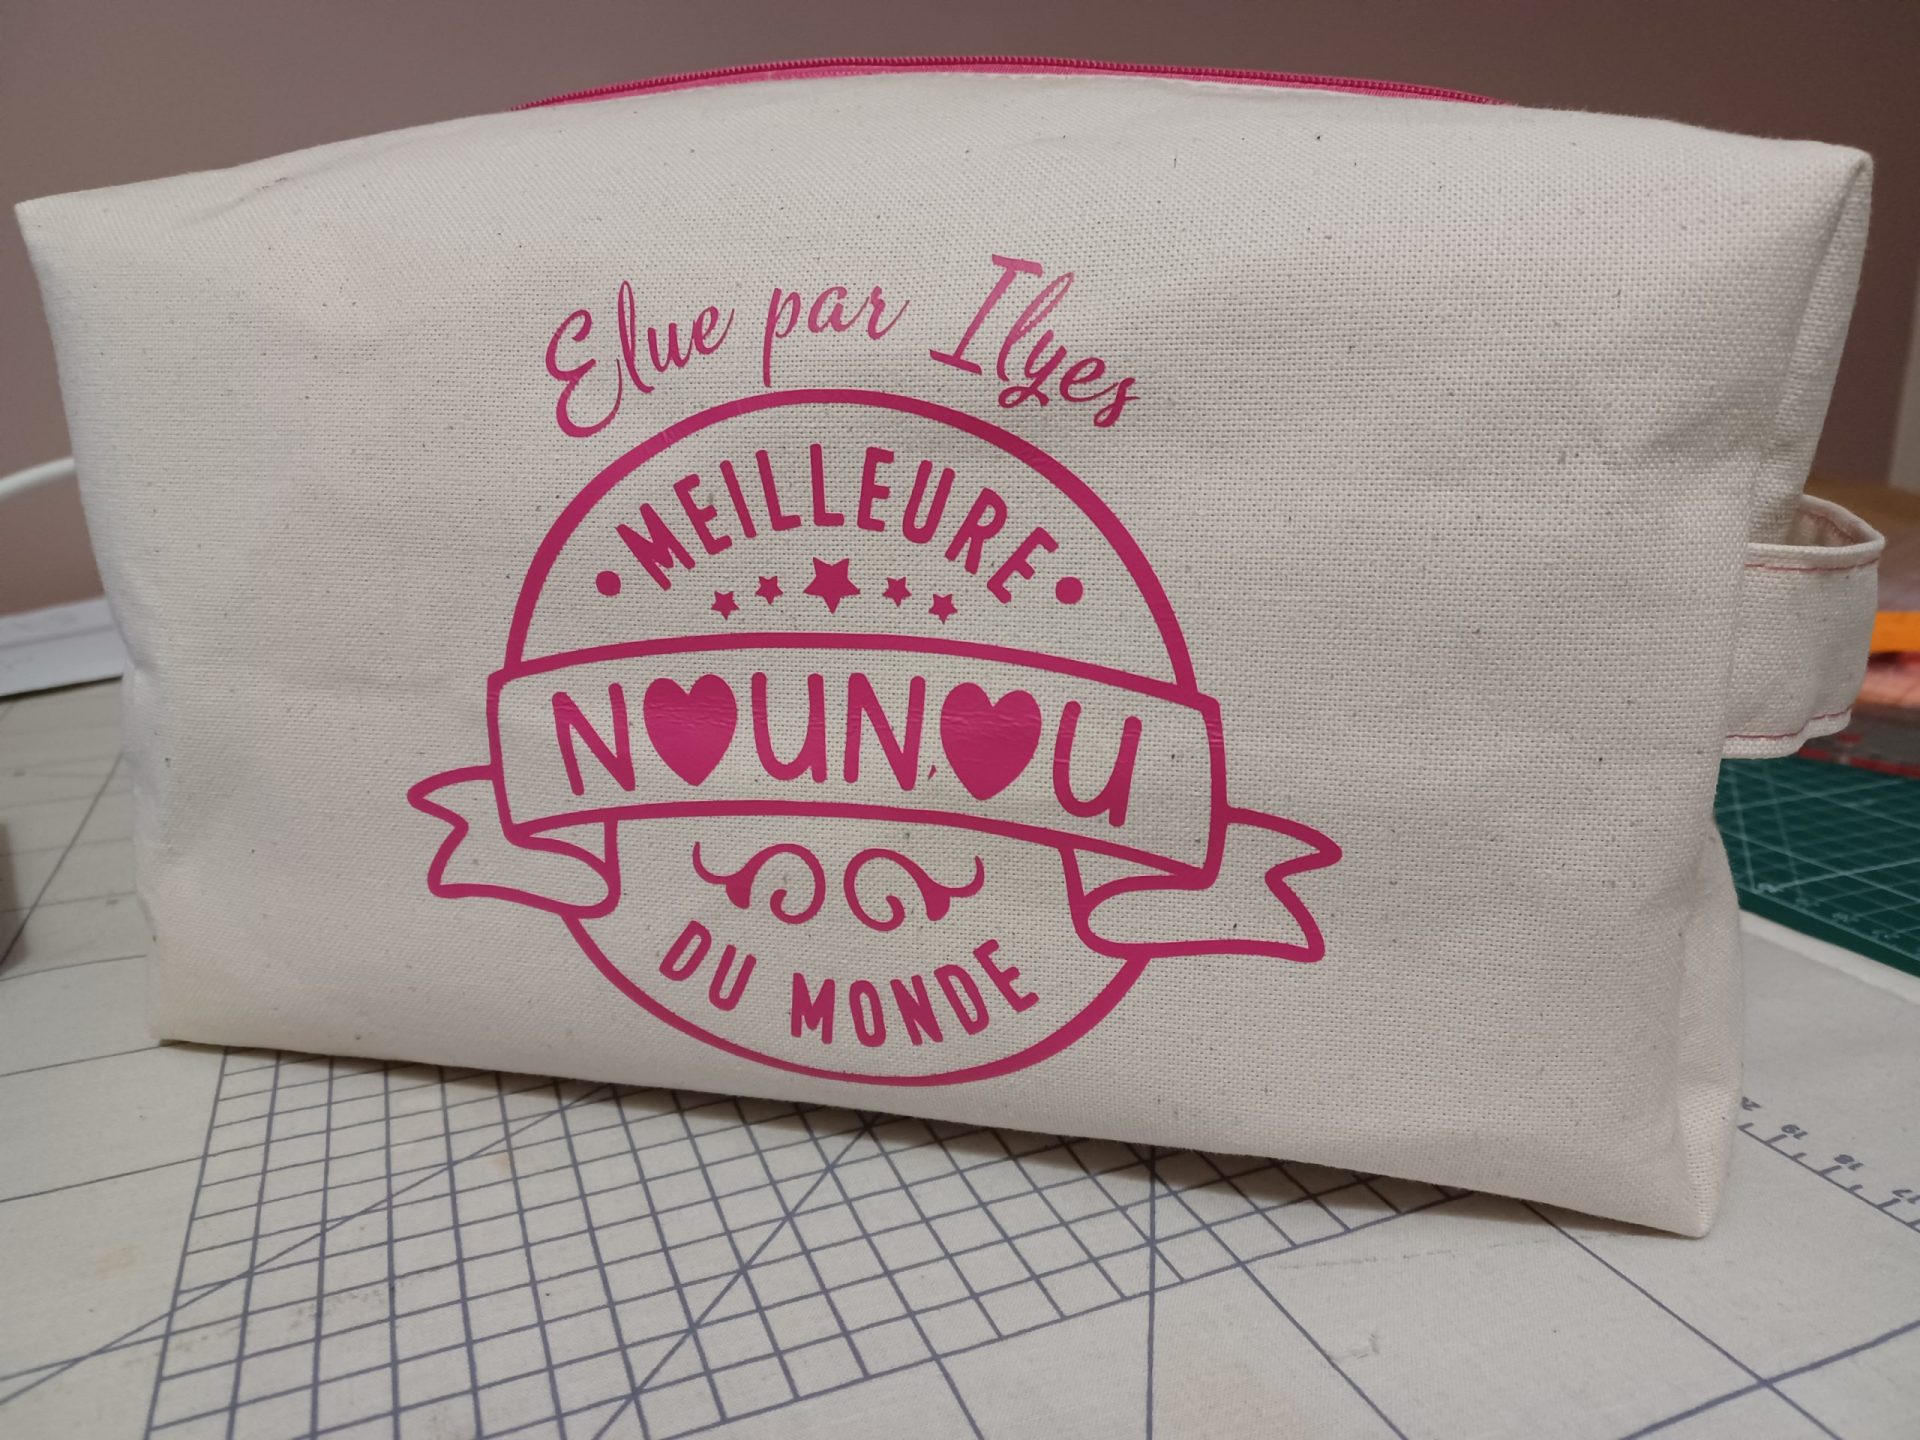 Elue par Ilyes
MEILLEURE
NOUNOU
DU MONDE
19
18
17